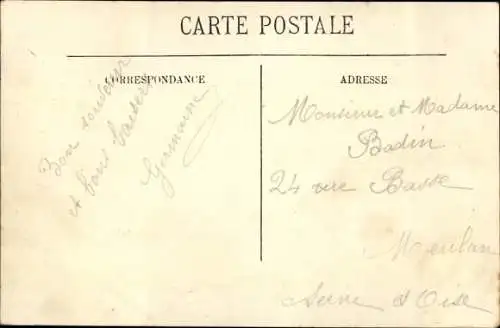 CARTE POSTALE
CORRESPONDANCE
Bon souvenir
et bons baisers
Germaine
ADRESSE
Monsieur et Madame
Badin
24 rue Basse
Meulan
Seine et Oise